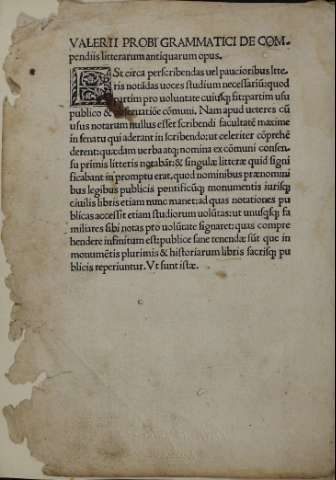 VALERII PROBI GRAMMATICI DE COM-
pendiis litterarum antiquarum opus.
ESt circa perscribendas uel paucioribus litte
ris notādas uoces studium necessariū: quod
partim pro uoluntate cuiusq; fit: partim usu
publico & obseruatiōe cōmuni. Nam apud ueteres cū
usus notarum nullus esset scribendi facultatē maxime
in senatu qui aderant in scribendo: ut celeriter cōprehē
derent: quædam uerba atq; nomina ex cōmuni consen-
su primis litteris notabāt: & singulæ litteræ quid signi
ficabant in promptu erat, quod nominibus prænomini
bus legibus publicis pontificūq; monumentis iurisq;
ciuilis libris etiam nunc manet: ad quas notationes pu
blicas accessit etiam studiorum uolūtas: ut unusqsq; fa
miliares sibi notas pro uolūtate signaret: quas compre
hendere infinitum est: publice sane tenendæ sūt que in
monumētis plurimis & historiarum libris sacrisq; pu
blicis reperiuntur. Vt sunt istæ.